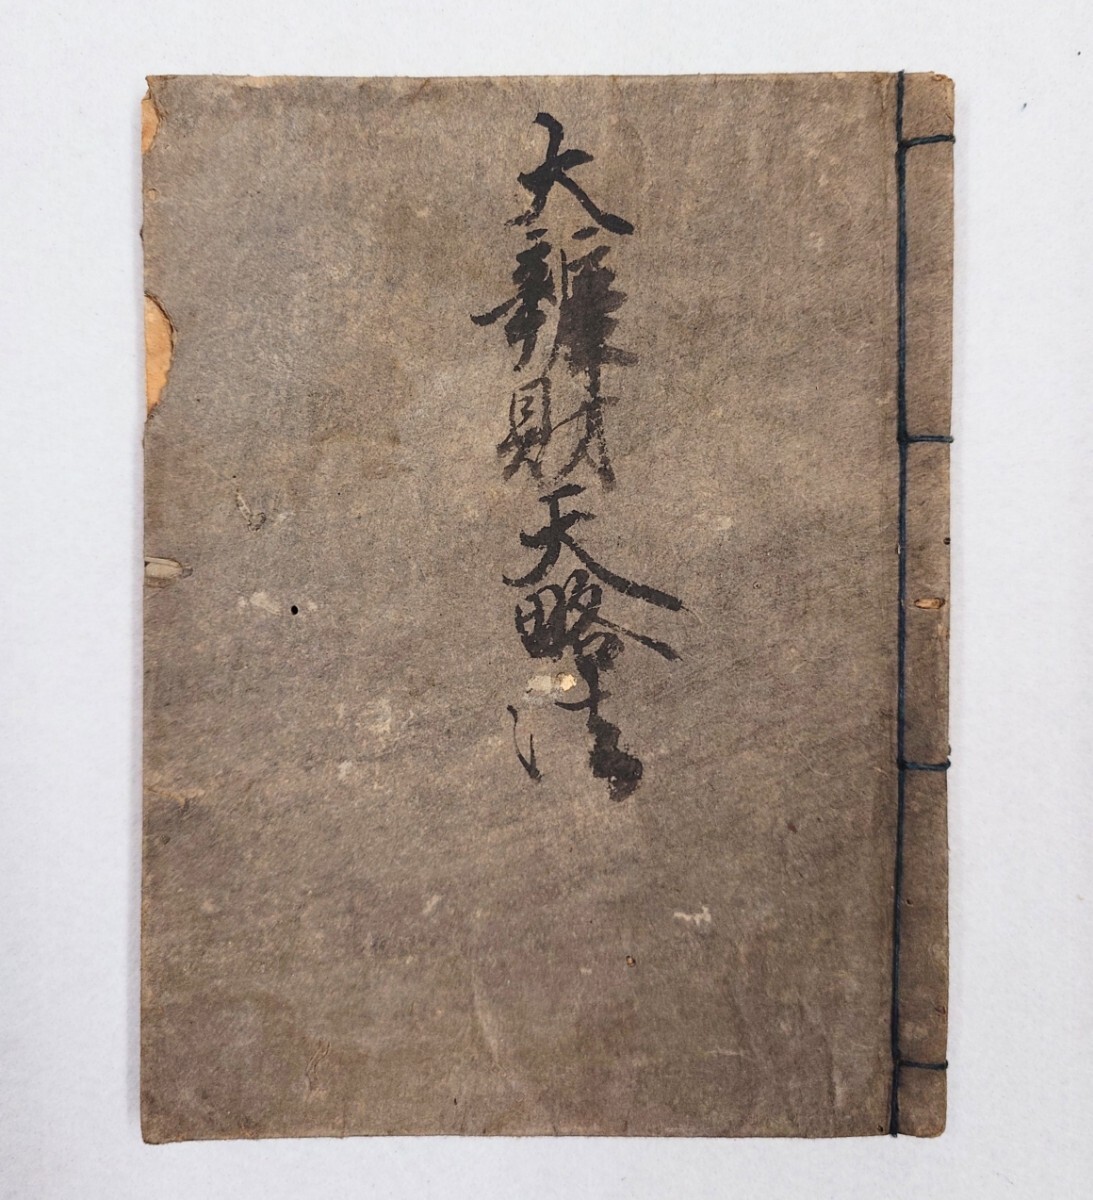 大辨財天略法